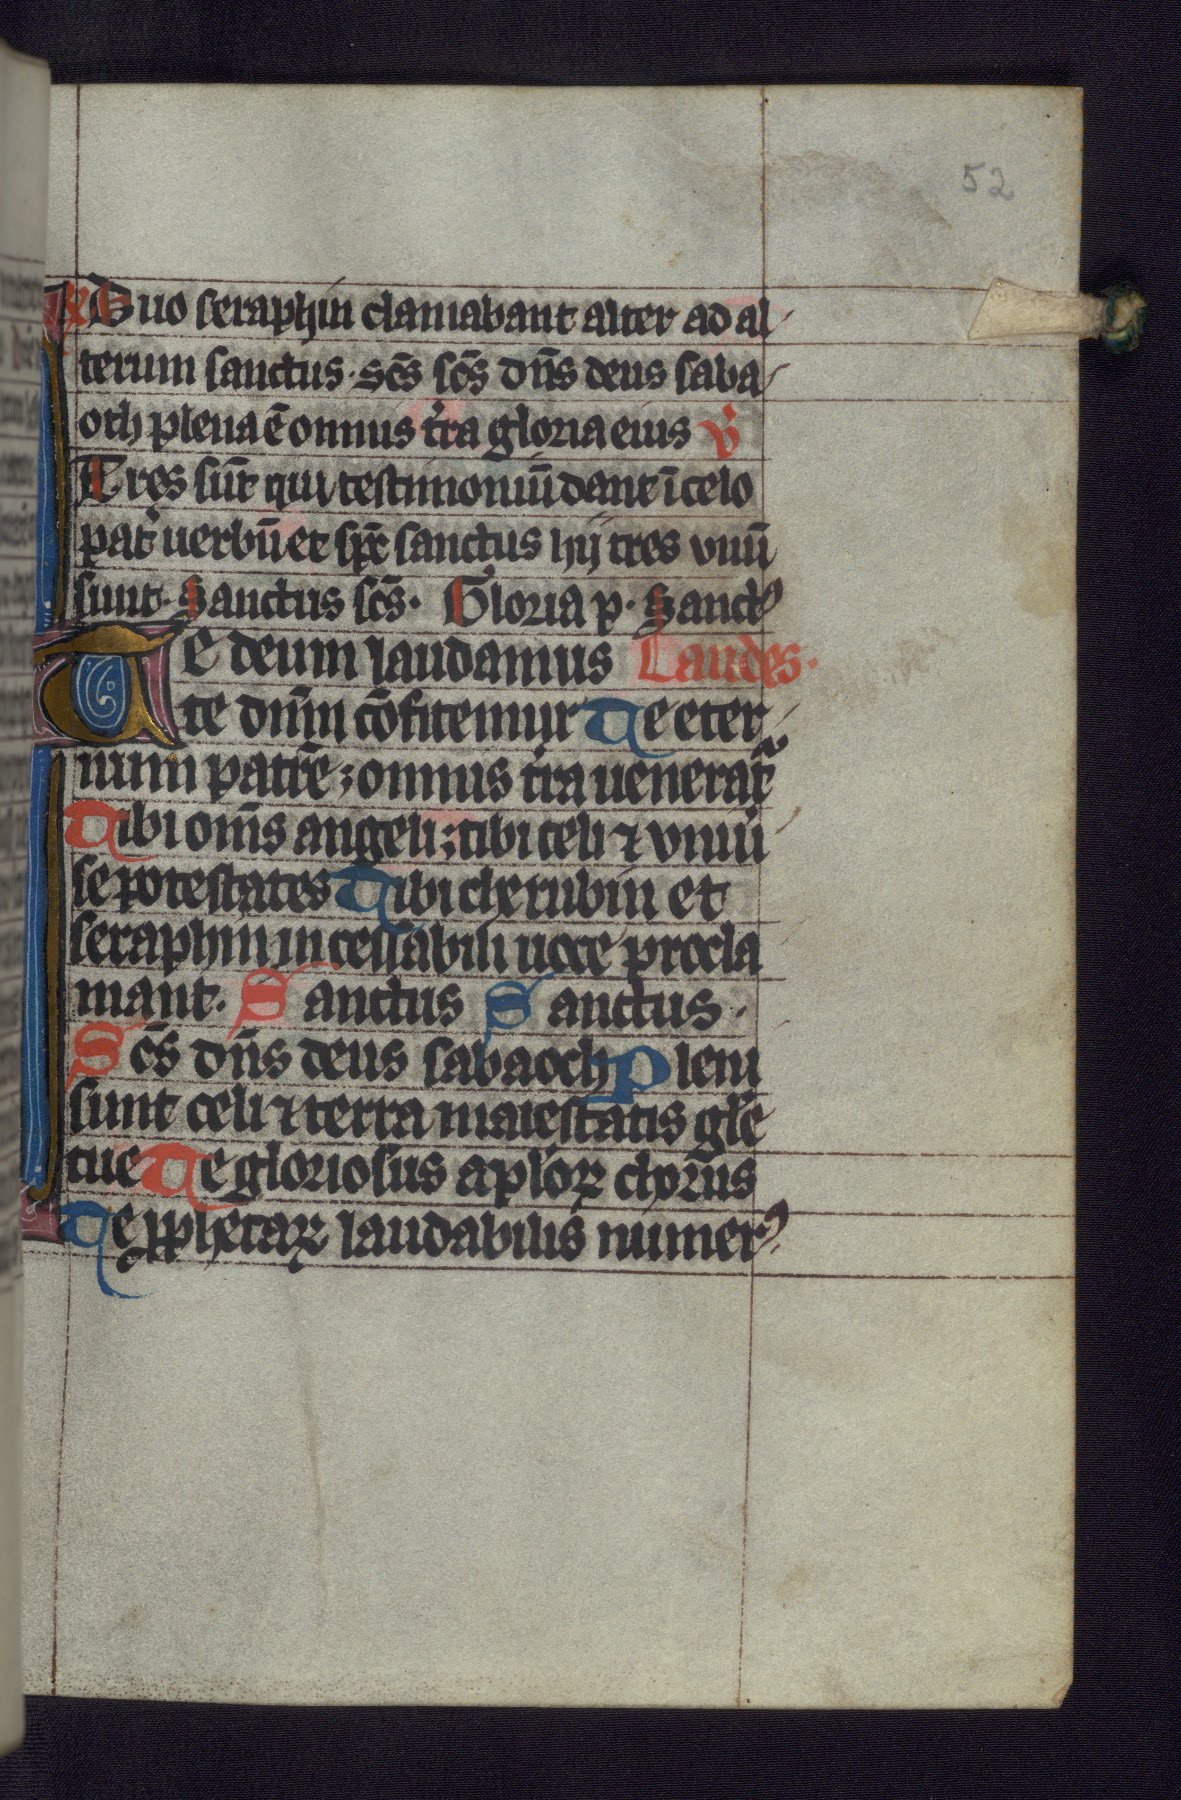 52
Duo seraphin clamabant alter ad al
terum sanctus. scs̄ scs̄ dn̄s deus saba
oth plena ē omnis t'ra gloria eius v̉
Tres sūt qui testimoniū dant ī celo
pat' uerbū et spc̄ sanctus hij tres vnū
sunt. Sanctus scs̄. Gloria p. Sanctꝰ
Te deum laudamus Laudes.
te dn̄m cōfitemur Te eter
num patrē ; omnis t'ra uenerat᷑
Tibi om̄s angeli ; tibi celi ⁊ vniū
se potestates Tibi cherubin et
seraphin incessabili uoce procla
mant. Sanctus Sanctus.
Scs̄ dn̄s deus sabaoth Pleni
sunt celi ⁊ terra maiestatis gl'e
tue Te gloriosus aplōꝝ chorus
Te ꝓphetaꝝ laudabilis numerꝰ